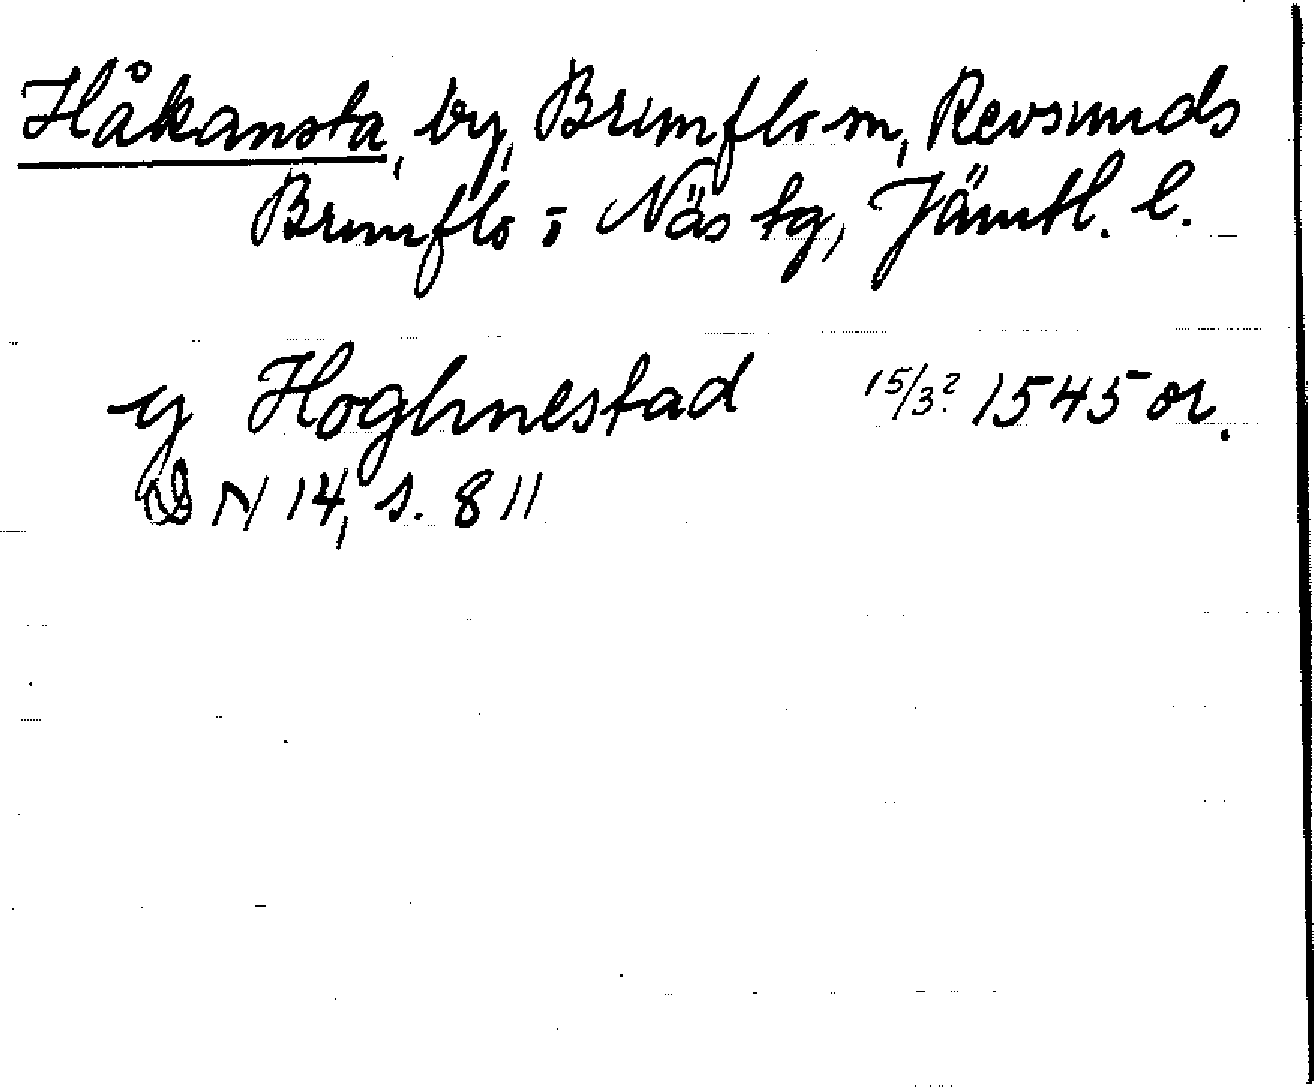 Håkansta, by, Brunflo sn, Revsunds
Brunflo o Näs tg, Jämtl. l.
y Hoghnestad 15/3? 1545 or.
DN 14, s. 811